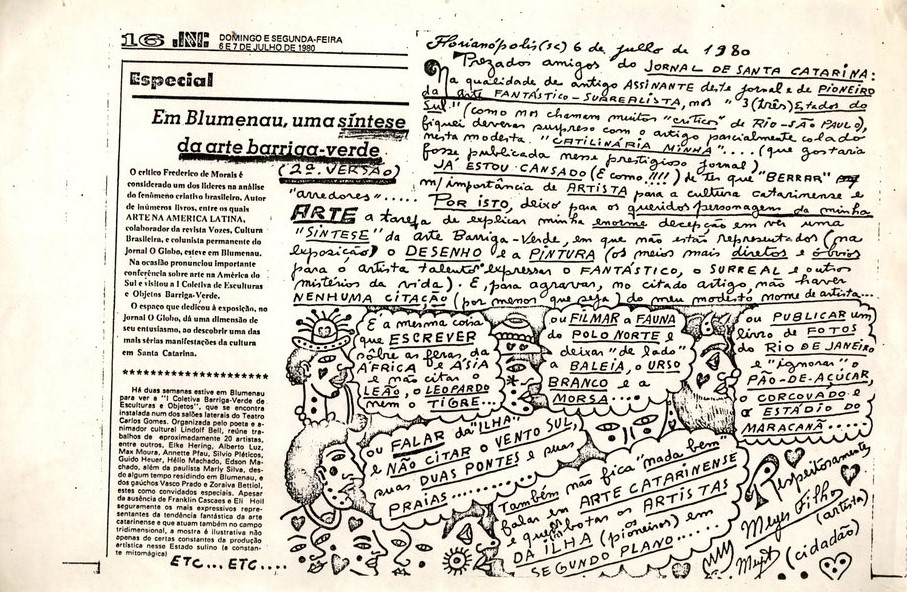 16 JSC DOMINGO E SEGUNDA-FEIRA
6 E 7 DE JULHO DE 1980
Especial
Em Blumenau, uma síntese
da arte barriga-verde
(2ª. VERSÃO)
O crítico Frederico de Morais é
considerado um dos líderes na análise
do fenômeno criativo brasileiro. Autor
de inúmeros livros, entre os quais
ARTE NA AMERICA LATINA,
colaborador da revista Vozes, Cultura
Brasileira, e colunista permanente do
Jornal O Globo, esteve em Blumenau.
Na ocasião pronunciou importante
conferência sobre arte na América do
Sul e visitou a I Coletiva de Esculturas
e Objetos Barriga-Verde.
O espaço que dedicou à exposição, no
jornal O Globo, dá uma dimensão de
seu entusiasmo, ao descobrir uma das
mais sérias manifestações da cultura
em Santa Catarina.
********************
Há duas semanas estive em Blumenau
para ver a "I Coletiva Barriga-Verde de
Esculturas e Objetos", que se encontra
instalada num dos salões laterais do Teatro
Carlos Gomes. Organizada pelo poeta e a-
nimador cultural Lindolf Bell, reúne tra-
balhos de aproximadamente 20 artistas,
entre outros, Elke Hering, Alberto Luz,
Max Moura, Annette Pfau, Silvio Pléticos,
Guido Heuer, Hélio Machado, Edson Ma-
chado, além da paulista Marly Silva, des-
de algum tempo residindo em Blumenau, e
dos gaúchos Vasco Prado e Zoraiva Bettiol,
estes como convidados especiais. Apesar
da ausência de Franklin Cascaes e Eli Heil
seguramente os mais expressivos repre-
sentantes da tendência fantástica da arte
catarinense e que atuam também no campo
tridimensional, a mostra é ilustrativa não
apenas de certas constantes da produção
artística nesse Estado sulino (a constan-
te mitomágica)
ETC... ETC....
Florianópolis (SC) 6 de julho de 1980
Prezados amigos do JORNAL DE SANTA CATARINA:
Na qualidade de antigo ASSINANTE deste jornal e de PIONEIRO
da arte FANTÁSTICO-SURREALISTA, nos "3 (três) Estados do
Sul" (como nos chamam muitos "críticos" de RIO-SÃO PAULO),
fiquei deveras surpreso com o artigo parcialmente colado
nesta modesta "CATILINÁRIA MINHA".... (que gostaria
fosse publicada nesse prestigioso jornal)
JÁ ESTOU CANSADO (E como !!!!) de ter que "BERRAR"
m/ importância de ARTISTA para a cultura catarinense e
"arredores".....
POR ISTO, deixo para os queridos personagens da minha
ARTE a tarefa de explicar minha enorme decepção em ver uma
"SÍNTESE" da arte Barriga-Verde, em que não estão representados (na
exposição) o DESENHO e a PINTURA (os meios mais diretos e óbvios
para o artista talento expressar o FANTÁSTICO, o SURREAL e outros
mistérios da vida). E, para agravar, no citado artigo, não haver
NENHUMA CITAÇÃO (por menor que seja) do meu modesto nome de artista...
E a mesma coisa
que ESCREVER
sôbre as feras da
ÁFRICA e ÁSIA
e não citar o
LEÃO, o LEOPARDO
nem o TIGRE...
ou FILMAR a FAUNA
do POLO NORTE e
deixar "de lado"
a BALEIA, o URSO
BRANCO e a
MORSA...
ou PUBLICAR um
livro de FOTOS
do RIO DE JANEIRO
e "ignorar" o
PÃO-DE-AÇÚCAR,
o CORCOVADO e
o ESTÁDIO DO
MARACANÃ....
ou FALAR da "ILHA"
e NÃO CITAR o VENTO SUL,
suas DUAS PONTES e suas
PRAIAS..........
Também não fica "nada bem"
falar em ARTE CATARINENSE
e que botar os ARTISTAS
DA ILHA (pioneiros) em
SEGUNDO PLANO......
Respeitosamente
Meyer Filho
(artista)
(cidadão)